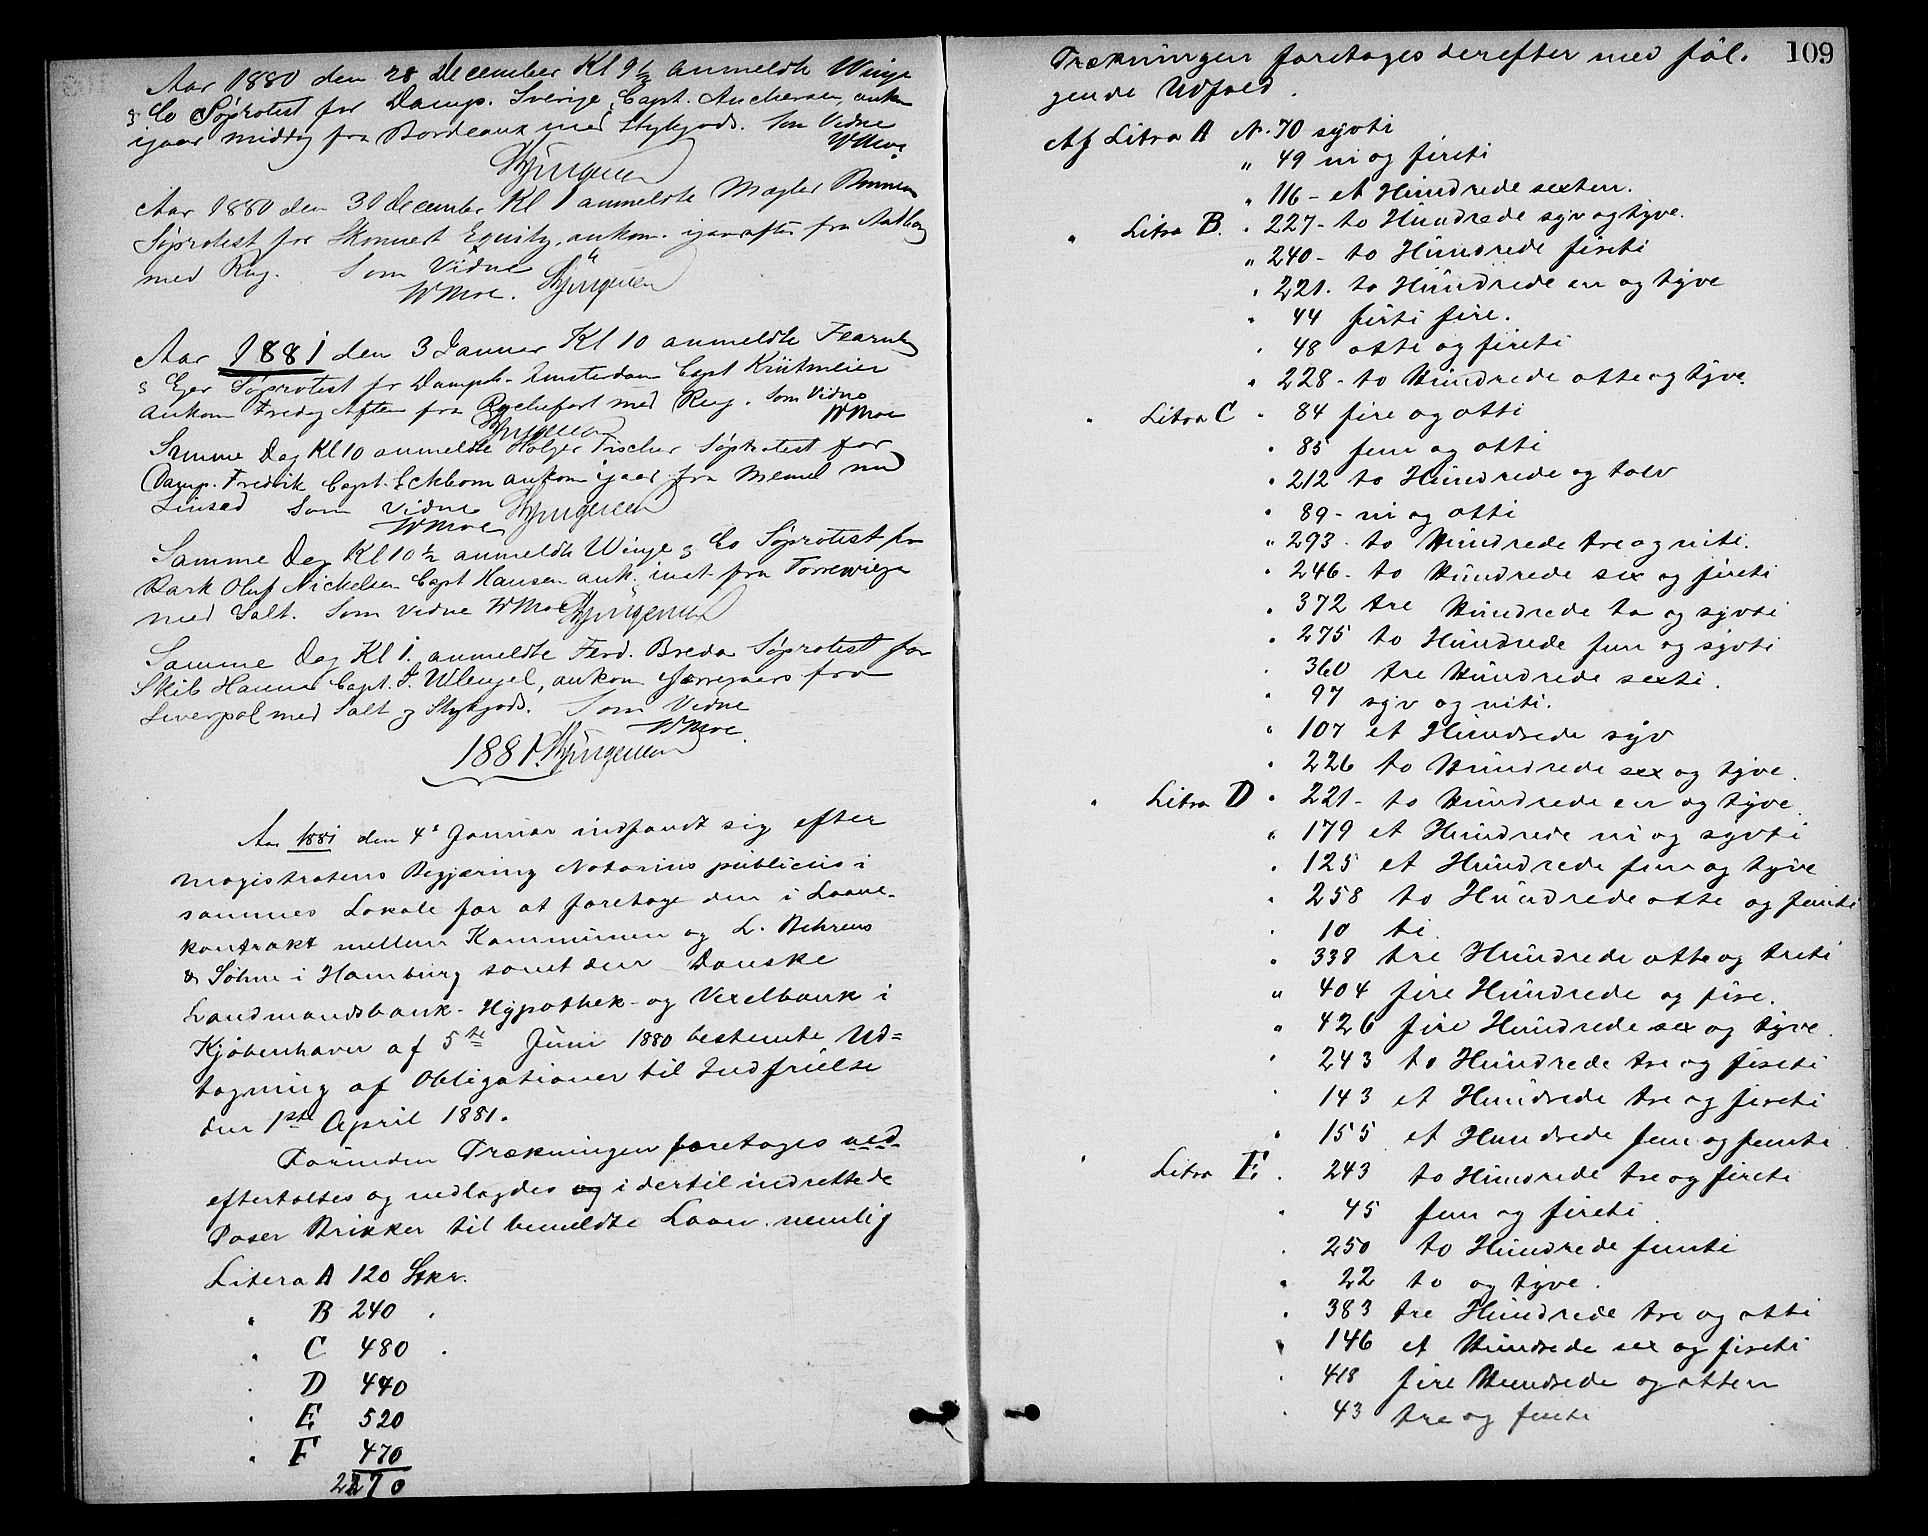 Aar 1880 den 28 December Kl 9½ anmeldte Winge
& Co Søprotest for Damp. Sverige, Capt. Anchersen, ankom
igaar middag fra Bordeaux med Stykgods. Som Vidne
WMoe
Aar 1880 den 30 december Kl 1 anmeldte Mægler
Søprotest for Skonnert Equity, ankom. igaaraftes fra
med Rug. Som Vidne
WMoe.
Aar 1881 den 3 Januar Kl 10 anmeldte Fearnley
& Eger Søprotest fr Dampsk. Amsterdam Capt
ankom Fredag Aften fra Rochefort med Rug. Som Vidne
WMoe
Samme Dag Kl 10 anmeldte Holger Fischer Søprotest for
Damp. Fredrik Capt. Eckbom ankom igaar fra Memel med
Linsæd Som Vidne
WMoe
Samme Dag Kl 10½ anmeldte Winge & Co Søprotest for
Bark Oluf Nickelsen Capt Hansen ank. inat fra
med Salt. Som Vidne WMoe
Samme Dag Kl 1. anmeldte Ferd. Breda Søprotest for
Skib Hanna Capt. ankom forrgaars fra
Liverpol med Salt & Stykgods. Som Vidne
WMoe.
1881.
Aar 1881 den 4de Januar indfandt sig efter
Magistratens Begjæring Notarius publicus i
sammes Lokale for at foretage den i Laane-
kontrakt mellem Kommunen og L. Behrens
& Söhne i Hamburg samt den Danske
Landmandsbank- Hypothek- og Vexelbank i
Kjøbenhavn af 5te Juni 1880 bestemte Ud=
tagning af Obligationer til Indfrielse
den 1ste April 1881.
Forinden Trækningen foretoges
eftertaltes og nedlagdes og i dertil indrettede
Poser Brikker til bemeldte Laan. nemlig
Litera A 120 Stkr.
" B 240 "
" C 480 "
" D 440
" E 520
" F 470
2270
109
Trækningen foretoges derefter med føl.
gende Udfald.
Af Litra A N. 70 syvti
" 49 ni og fireti
" 116 - et Hundrede sexten.
" Litra B. " 227 - to Hundrede syv og tyve.
" 240 - to Hundrede fireti
" 221. to Hundrede en og tyve
" 44 firti fire.
" 48 otti og fireti
" 228 - to Hundrede otte og tyve.
" Litra C " 84 fire og otti
" 85 fem og otti
" 212 to Hundrede og tolv
" 89 - ni og otti
" 293 - to Hundrede tre og niti.
" 246 - to Hundrede sex og fireti
" 372 tre Hundrede to og syvti
" 275 to Hundrede fem og syvti
" 360 tre Hundrede sexti.
" 97 syv og niti.
" 107 et Hundrede syv
" 226 to Hundrede sex og tyve.
" Litra D " 221 - to Hundrede en og tyve
" 179 et Hundrede ni og syvti
" 125 et Hundrede fem og tyve
" 258 to Hundrede otte og femti
" 10 ti
" 338 tre Hundrede otte og treti
" 404 fire Hundrede og fire.
" 426 fire Hundrede sex og tyve.
" 243 to Hundrede tre og fireti
" 143 et Hundrede tre og fireti
" 155 et Hundrede fem og femti
" Litra E. " 243 to Hundrede tre og fireti
" 45 fem og fireti
" 250 to Hundrede femti
" 22 to og tyve.
" 383 tre Hundrede tre og otti
" 146 et Hundrede sex og fireti
" 418 fire Hundrede og atten
" 43 tre og